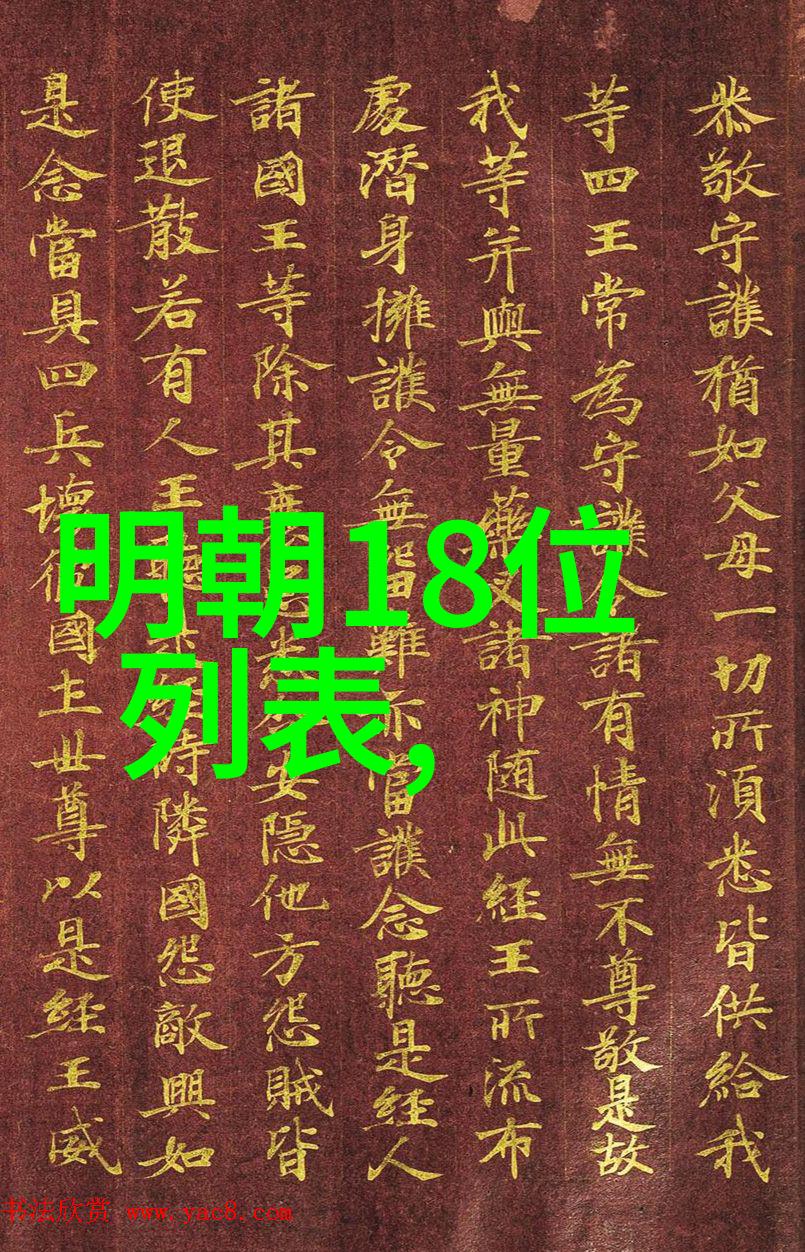 恭敬守護猶如父母一切所須悉皆供給我
等四王常為守護令諸有情無不尊敬是故
我等并與無量藥叉諸神随此經王所流布
處潛身擁護令無留難亦當護念聽是經人
諸國王等除其衰患悉令安隱他方怨賊皆
使退散若有人王
時隣國怨敵興如
是念當具四兵壞彼國土世尊以是經王威
明朝18位
列表,
书法欣赏 www.yac8.com